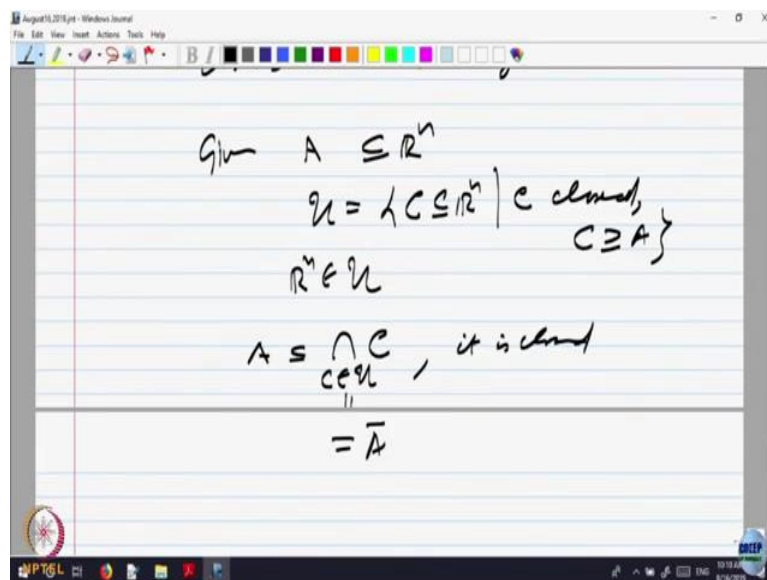 August16,2019.jnt - Windows Journal
File Edit View Insert Actions Tools Help
Given A ⊆ ℝⁿ
𝒰 = { C ⊆ ℝⁿ | C closed,
C ⊇ A }
ℝⁿ ∈ 𝒰
A ⊆ ⋂ C , it is closed
C∈𝒰
||
= Ā
NPTEL
CDEEP
ENG 10:10 AM
8/16/2019